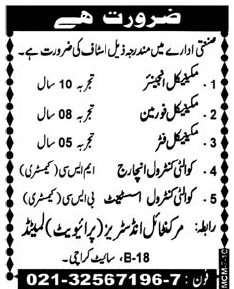 ضرورت ھے
صنعتی ادارے میں مندرجہ ذیل اسٹاف کی ضرورت ہے۔
1. مکینیکل انجینئر تجربہ 10 سال
2. مکینیکل فورمین تجربہ 08 سال
3. مکینیکل فٹر تجربہ 05 سال
4. کوالٹی کنٹرول انچارج ایم ایس سی (کیمسٹری)
5. کوالٹی کنٹرول اسسٹنٹ بی ایس سی (کیمسٹری)
رابطہ: مرکنٹائل انڈسٹریز (پرائیویٹ) لمیٹڈ
B-18، سائیٹ کراچی۔
فون: 021-32567196-7